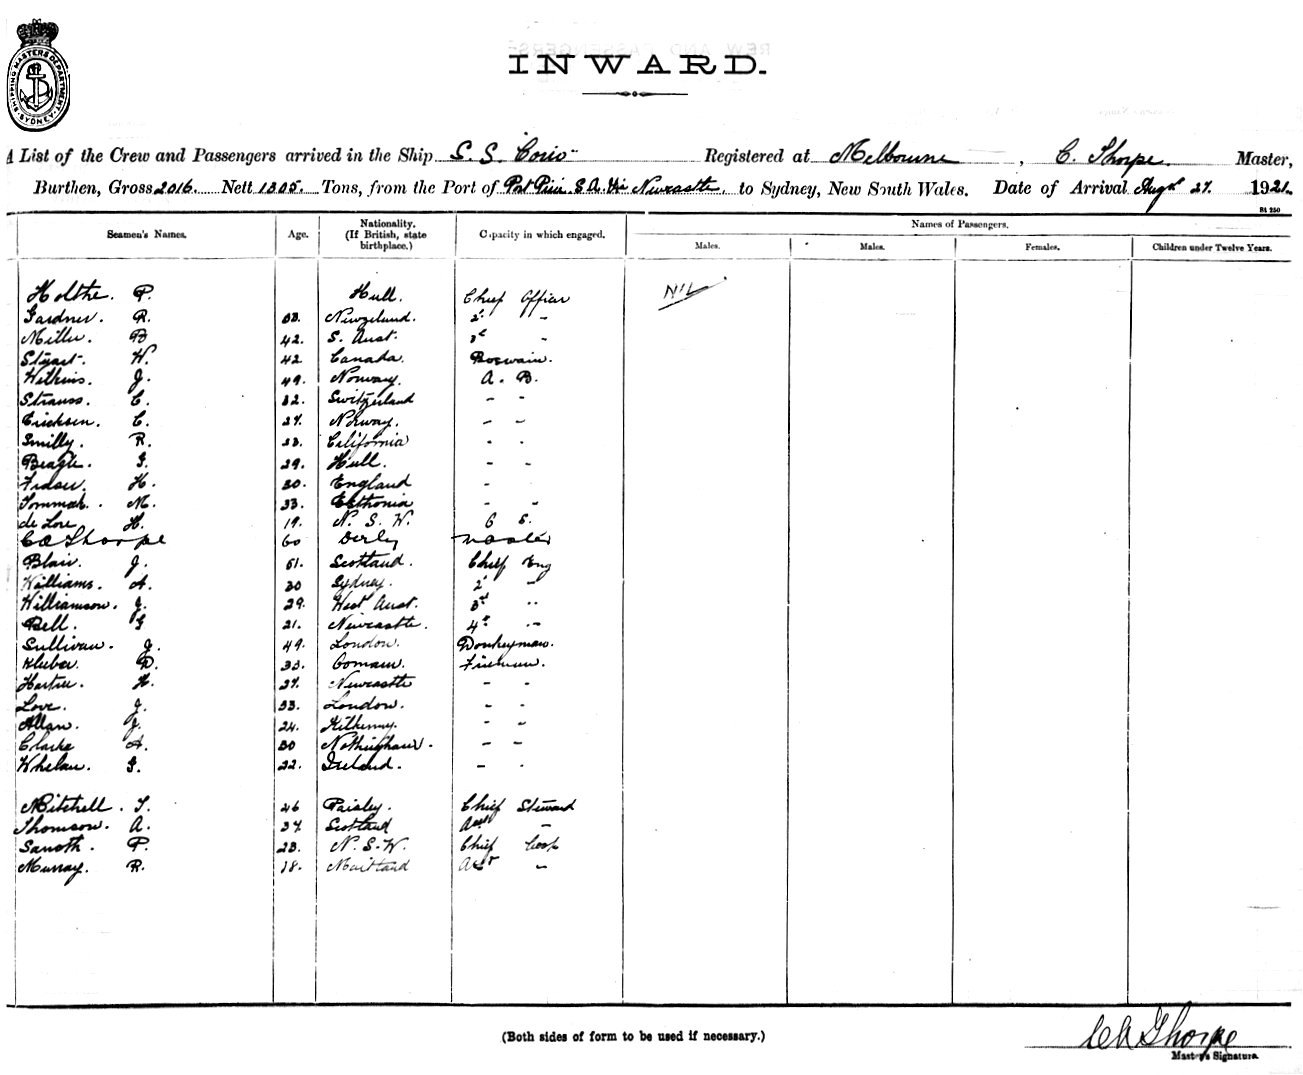 SHIPPING MASTERS DEPARTMENT SYDNEY
INWARD.
List of the Crew and Passengers arrived in the Ship S. S. "Corio" Registered at Melbourne, C. Thorpe. Master,
Burthen, Gross 2016. Nett 1305. Tons, from the Port of Port Pirie. S. A. Via Newcastle, to Sydney, New South Wales. Date of Arrival Augst 27. 1921.
B4 250
Seamen's Names. Age. Nationality. (If British, state birthplace.) Capacity in which engaged. Names of Passengers.
Males. Males. Females. Children under Twelve Years.
Holthe. P. Hull. Chief Officer NIL
Gardner. R. 33. Newzeland. 2d "
Miller. B 42. S. Aust. 3d "
Stuart. W. 42 Canada. Boswain.
Wilkins. J. 49. Norway. A. B.
Strauss. C. 32. Switzerland " "
Ericksen. C. 27. Norway. " "
Smilly. R. 23. California " "
Beagle. G. 29. Hull. " "
Fraser. H. 30. England "
Tommak. M. 33. Esthonia " "
de Lore H. 19. N. S. W. O S.
C A Thorpe 60 Derby Master
Blair. J. 51. Scotland. Chief Eng
Williams. A. 30 Sydney. 2d "
Williamson. J. 29. West Aust. 3rd "
Bell. G 21. Newcastle. 4th "
Sullivan. J. 49. London. Donkeyman.
D. 33. Fireman.
H. 27. Newcastle " "
Love. J. 33. London. " "
Allan. J. 24. Kilkenny. " "
Clarke A. 30 Nottingham. " "
Whelan. G. 22. Ireland. " "
Mitchell. T. 46 Paisley. Chief Steward
Thomson. A. 37. Scotland Asst "
P. 23. N. S. W. Chief Cook
Murray. R. 18. Maitland Asst "
(Both sides of form to be used if necessary.)
C A Thorpe
Master's Signature.